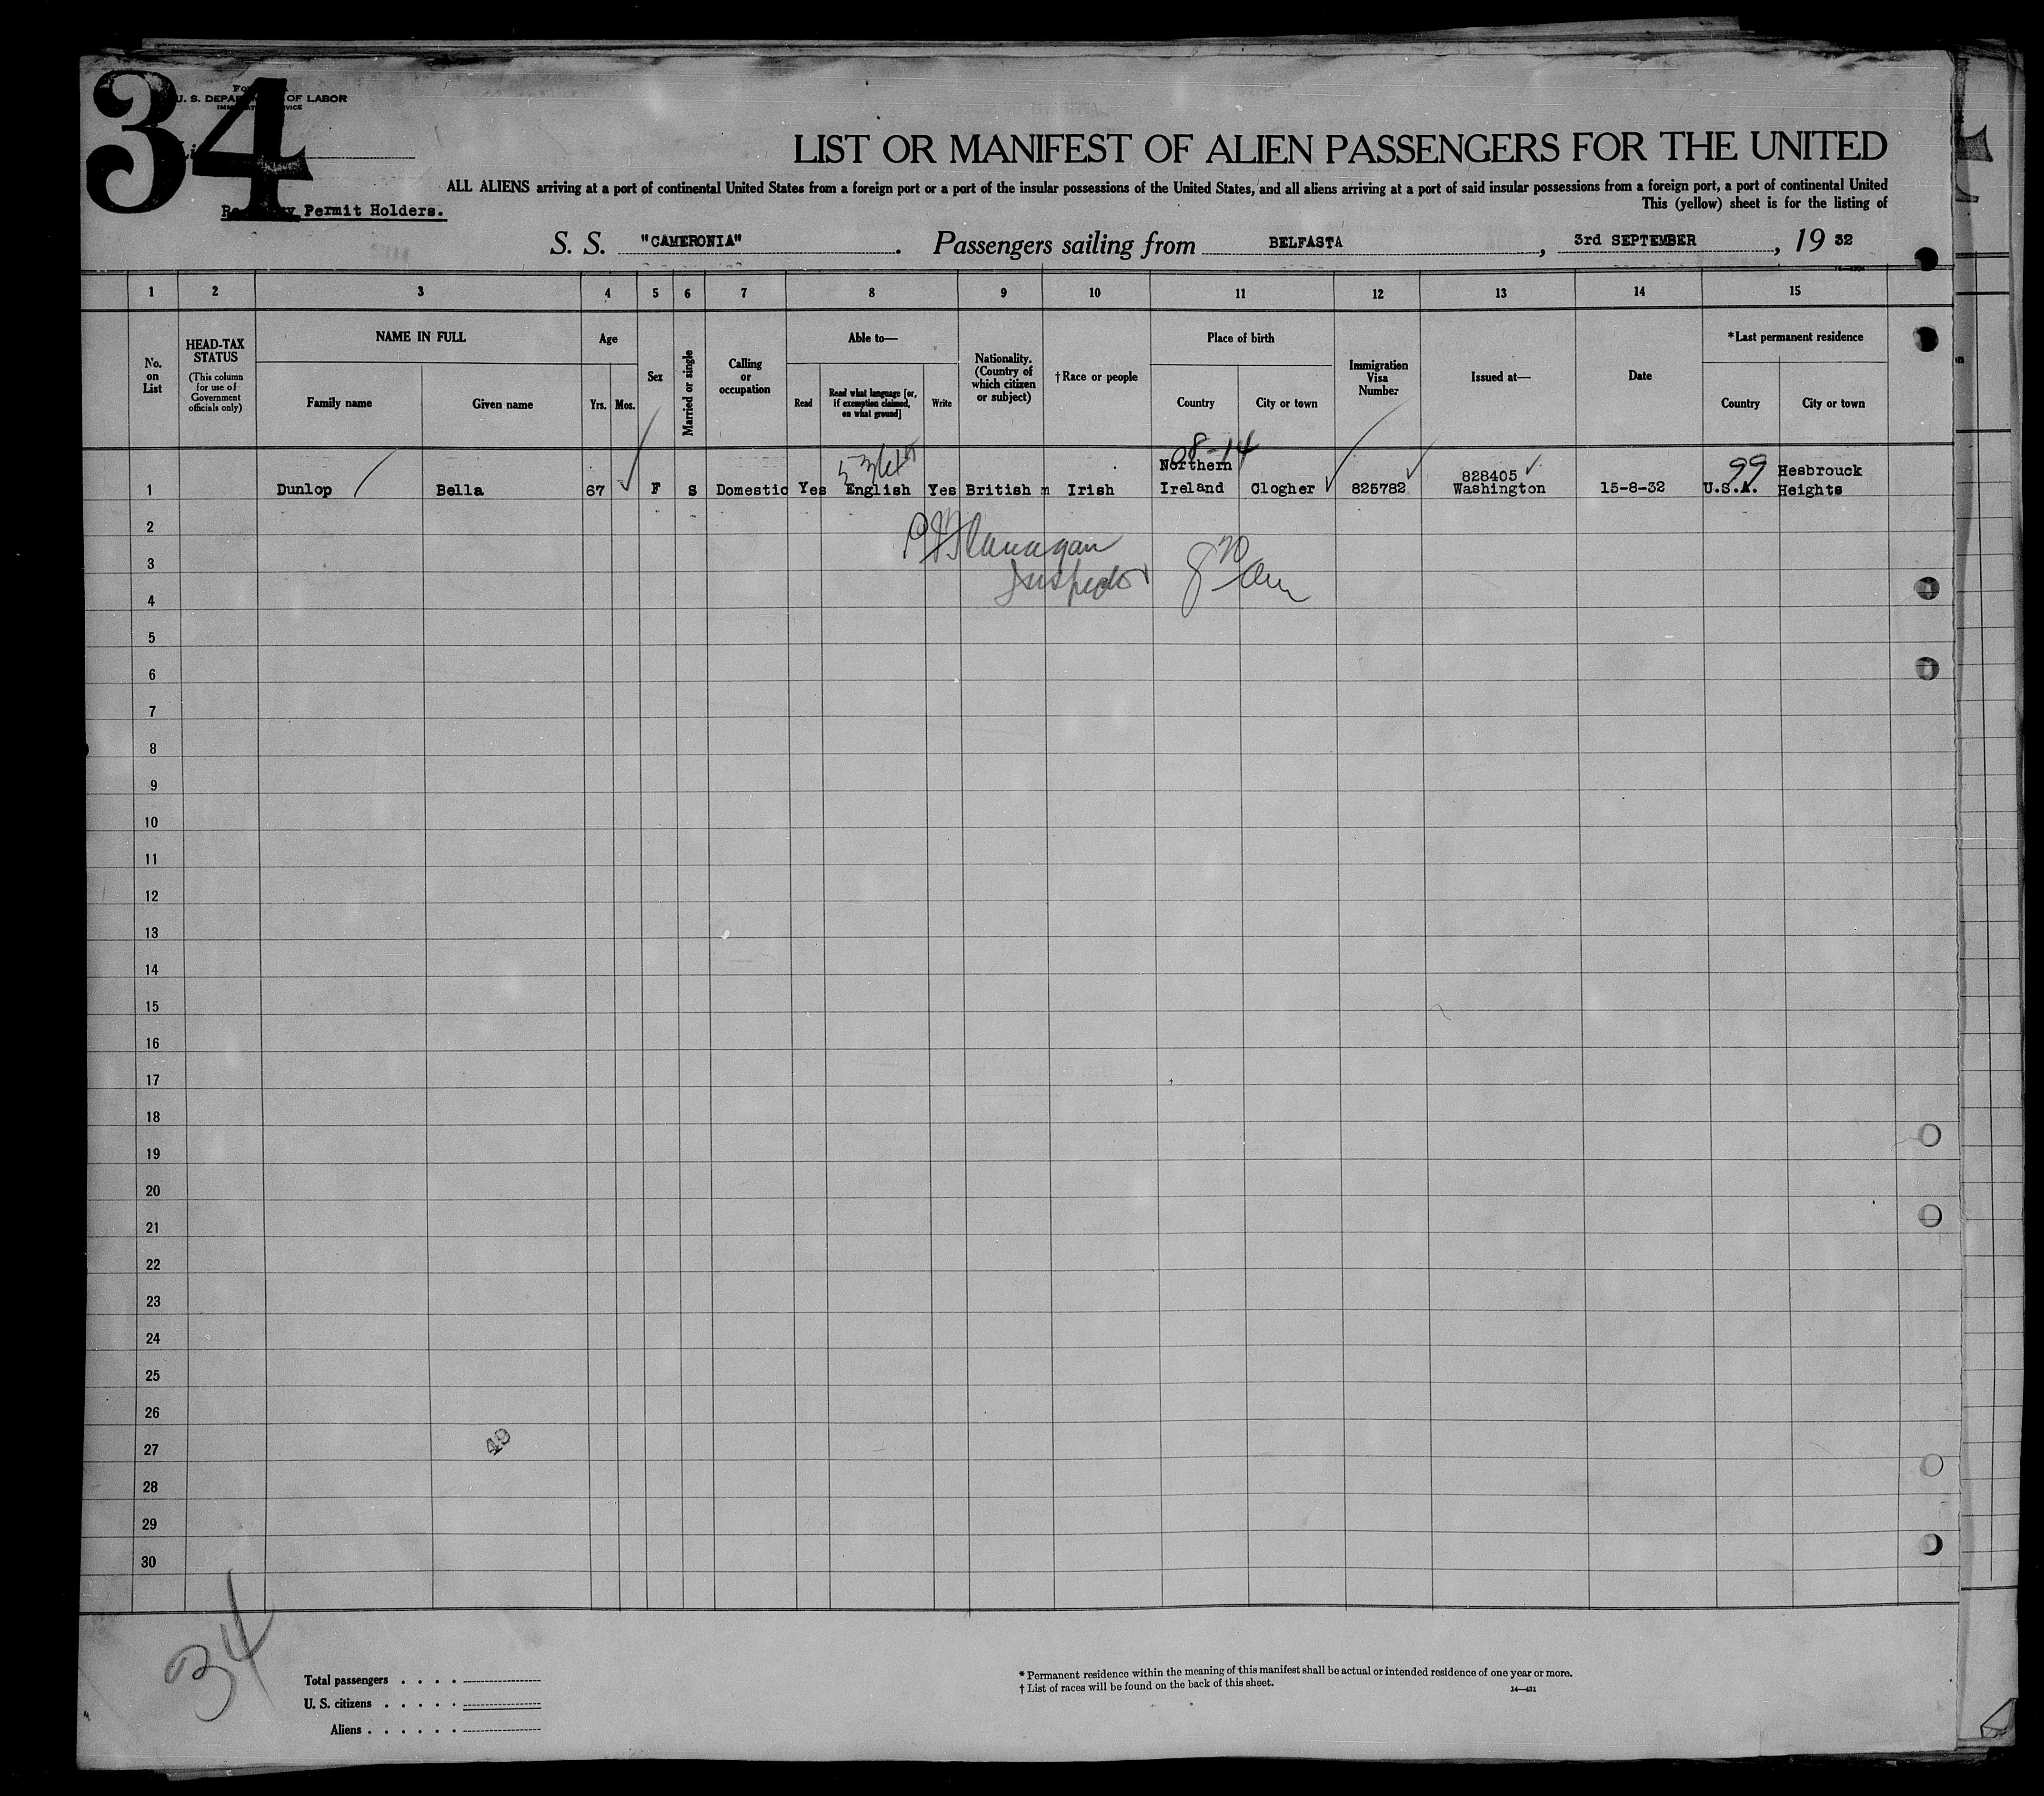 34
U. S. DEPARTMENT OF LABOR
LIST OR MANIFEST OF ALIEN PASSENGERS FOR THE UNITED
ALL ALIENS arriving at a port of continental United States from a foreign port or a port of the insular possessions of the United States, and all aliens arriving at a port of said insular possessions from a foreign port, a port of continental United
This (yellow) sheet is for the listing of
Permit Holders.
S. S. "CAMERONIA". Passengers sailing from BELFASTA, 3rd SEPTEMBER, 19 32
1 2 3 4 5 6 7 8 9 10 11 12 13 14 15
No. on List
HEAD-TAX STATUS
(This column for use of Government officials only)
NAME IN FULL
Family name
Given name
Age
Yrs.
Mos.
Sex
Married or single
Calling or occupation
Able to—
Read
Read what language [or, if exemption claimed, on what ground]
Write
Nationality. (Country of which citizen or subject)
†Race or people
Place of birth
Country
City or town
Immigration Visa Number
Issued at—
Date
*Last permanent residence
Country
City or town
08-14
99
Northern 828405 Hesbrouck
1 Dunlop Bella 67 F S Domestic Yes English Yes British m Irish Ireland Clogher 825782 Washington 15-8-32 U.S.A. Heights
2
Flanagan
3
Inspector
4
5
6
7
8
9
10
11
12
13
14
15
16
17
18
19
20
21
22
23
24
25
26
27
49
28
29
30
34
Total passengers . . . .
U. S. citizens . . . . .
Aliens . . . . . .
* Permanent residence within the meaning of this manifest shall be actual or intended residence of one year or more.
† List of races will be found on the back of this sheet.